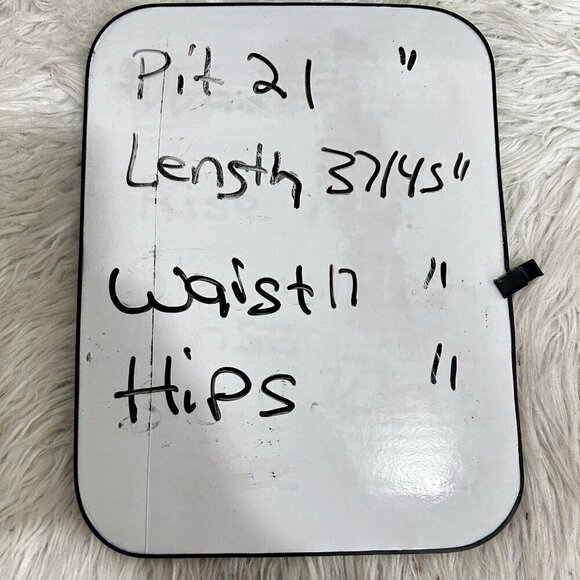 Pit 21 "
Length 37/45"
Waist 17 "
Hips "